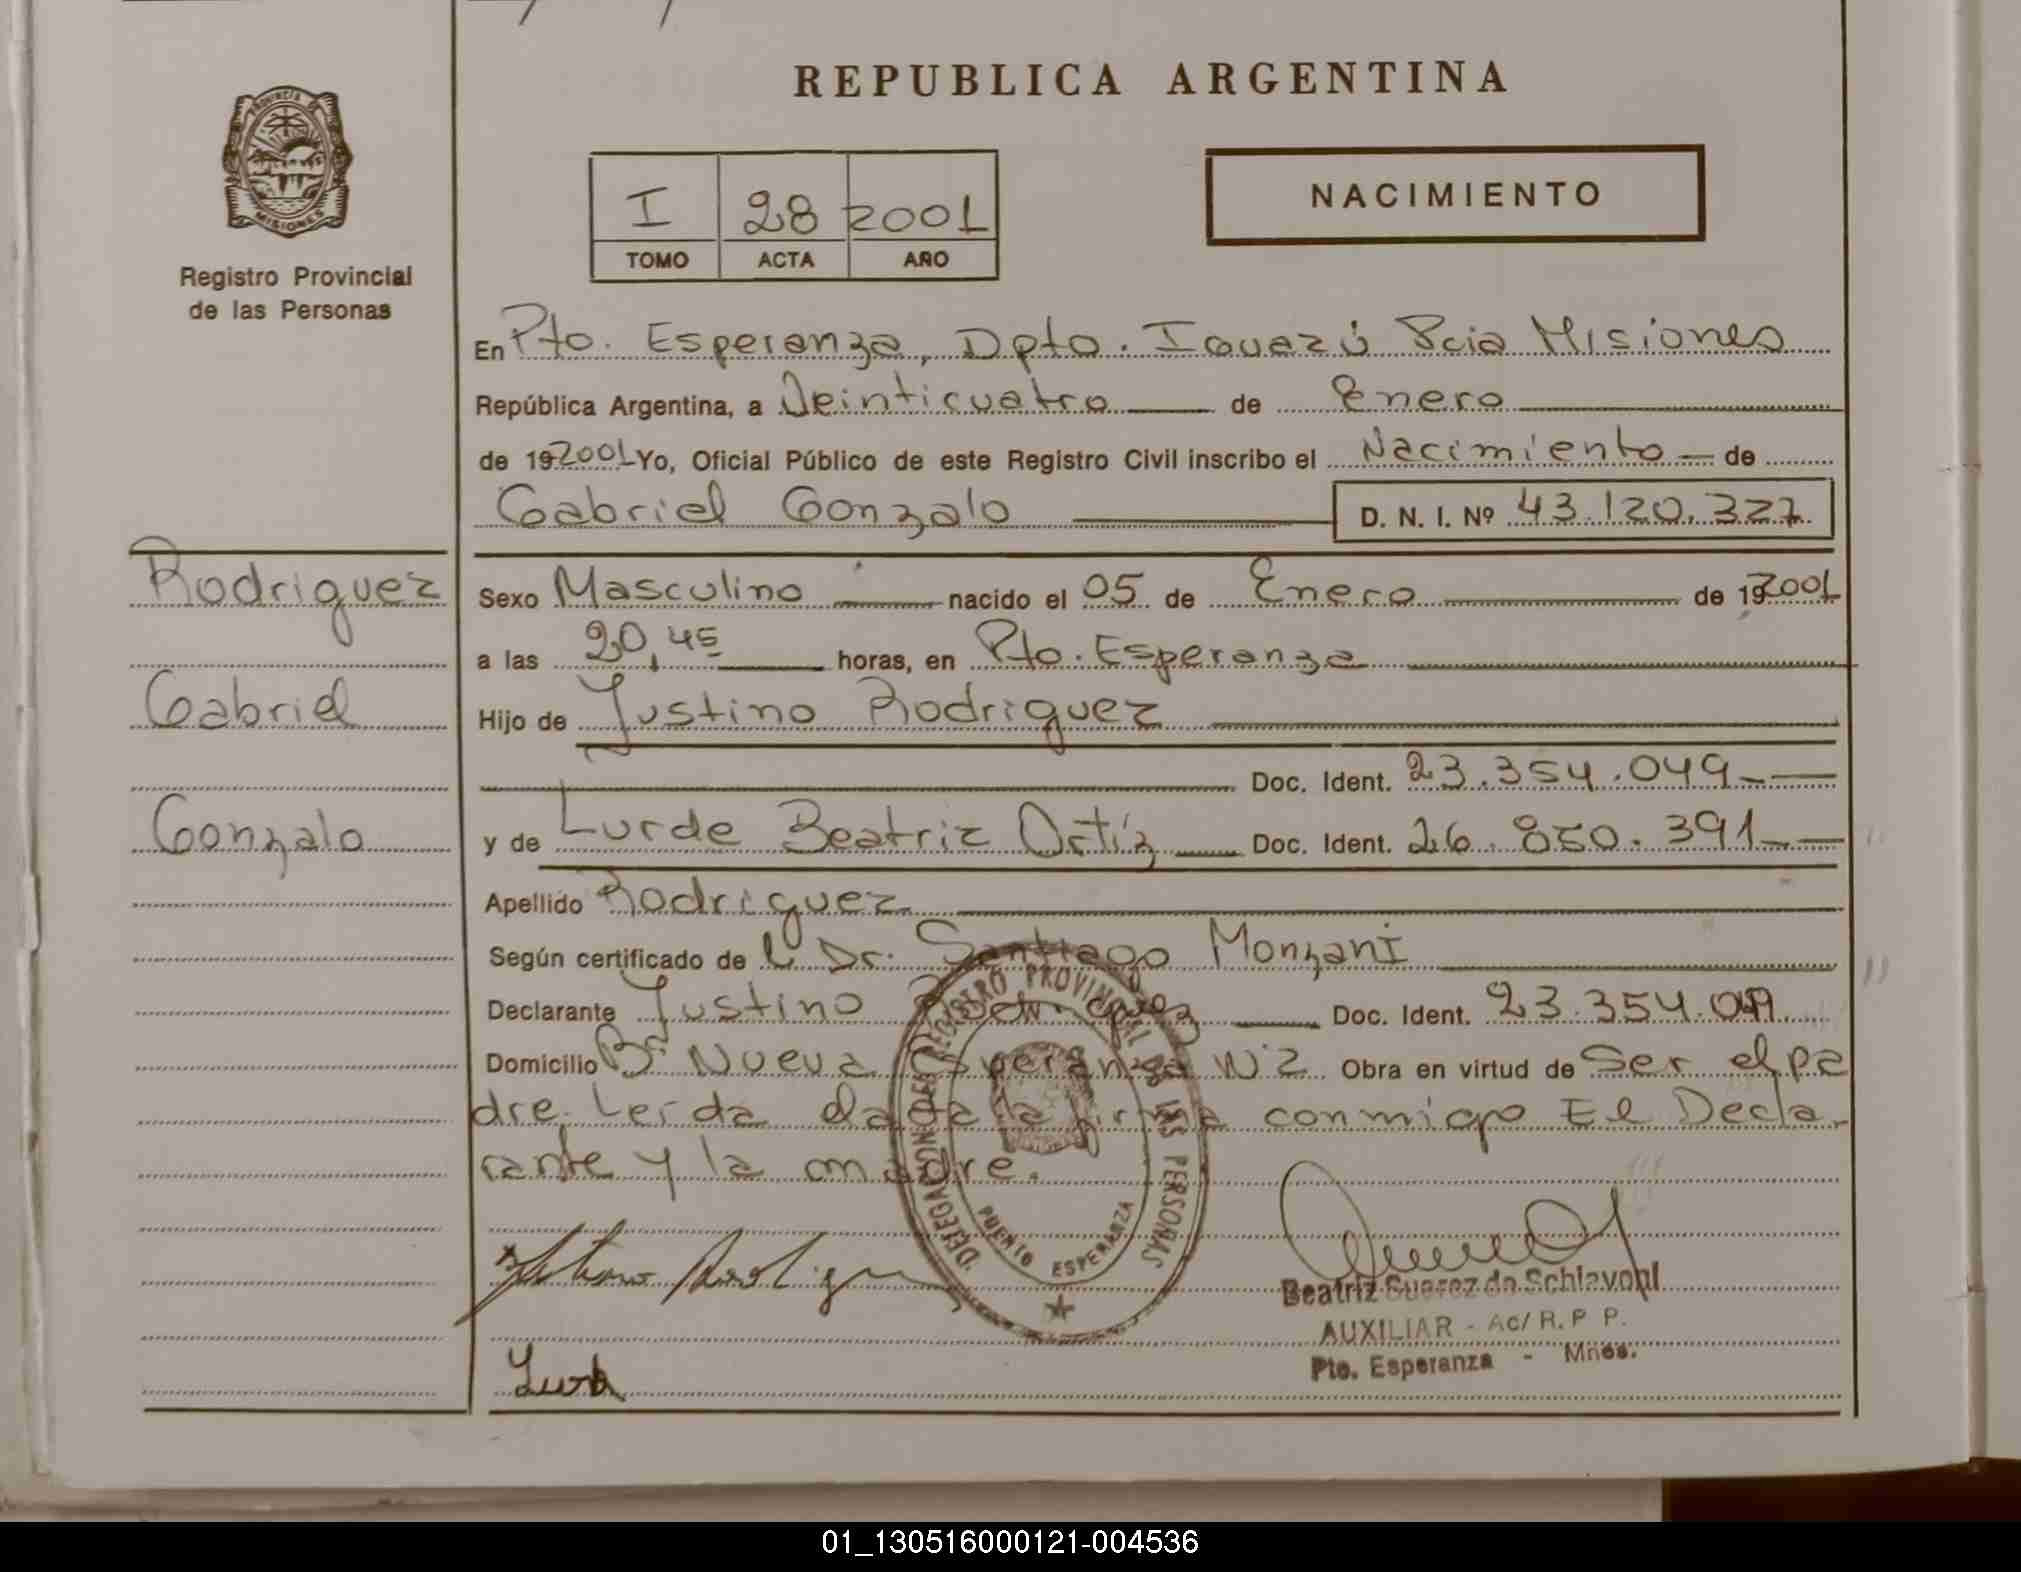 REPUBLICA ARGENTINA
PROVINCIA DE MISIONES
Registro Provincial
de las Personas
I 28 2001
TOMO ACTA AÑO
NACIMIENTO
En Pto. Esperanza, Dpto. Iguazú Pcia Misiones
República Argentina, a Veinticuatro de Enero
de 192001 Yo, Oficial Público de este Registro Civil inscribo el Nacimiento de
Gabriel Gonzalo D. N. I. Nº 43.120.327
Rodriguez
Gabriel
Gonzalo
Sexo Masculino nacido el 05 de Enero de 192001
a las 20,45 horas, en Pto. Esperanza
Hijo de Justino Rodriguez
Doc. Ident. 23.354.049
y de Lurde Beatriz Ortíz Doc. Ident. 26.850.391
Apellido Rodriguez
Según certificado de l Dr. Santiago Monzani
Declarante Justino Rodriguez Doc. Ident. 23.354.049
Domicilio Bº Nueva Esperanza N 2 Obra en virtud de Ser el pa
dre. Leida el acta la firma conmigo El Decla
rante y la madre.
DELEGACION DEL REGISTRO PROVINCIAL DE LAS PERSONAS
PUERTO ESPERANZA
Beatriz Suarez de Schiavoni
AUXILIAR - Ac/ R. P P.
Pto. Esperanza - Mnes.
01_130516000121-004536